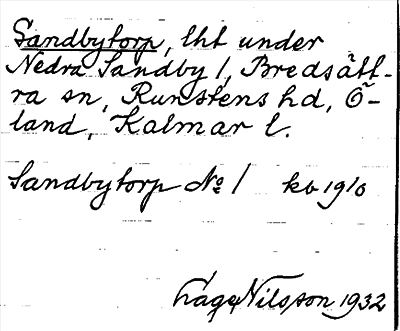 Sandbytorp, lht under
Nedra Sandby 1, Bredsätt-
ra sn, Runstens hd, Ö-
land, Kalmar l.
Sandbytorp No 1 kb 1910
Låge Nilsson 1932